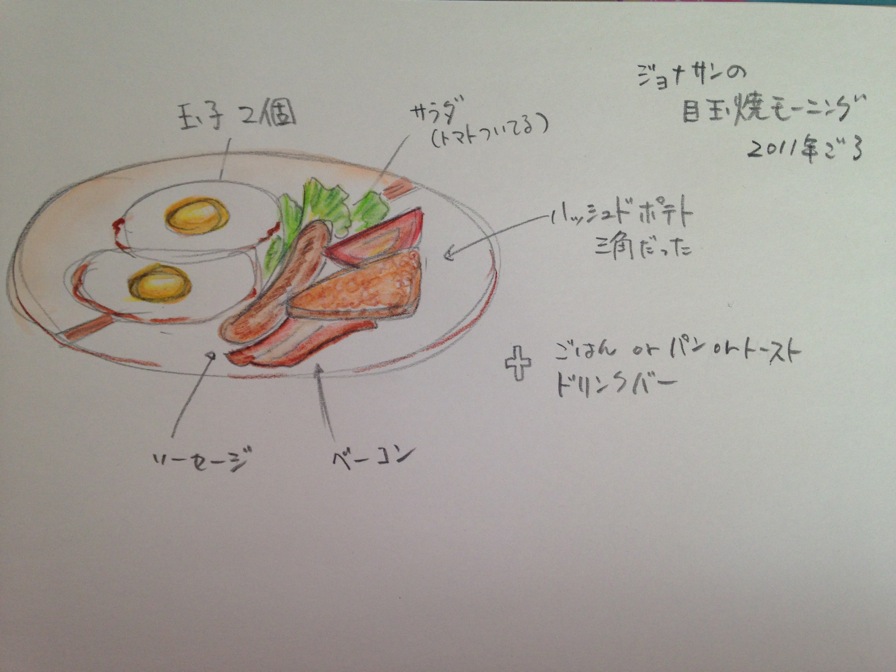 ジョナサンの
目玉焼モーニング
2011年ごろ
玉子 2個
サラダ
(トマトついてる)
ハッシュドポテト
三角だった
+ ごはん or パン or トースト
ドリンクバー
ソーセージ
ベーコン